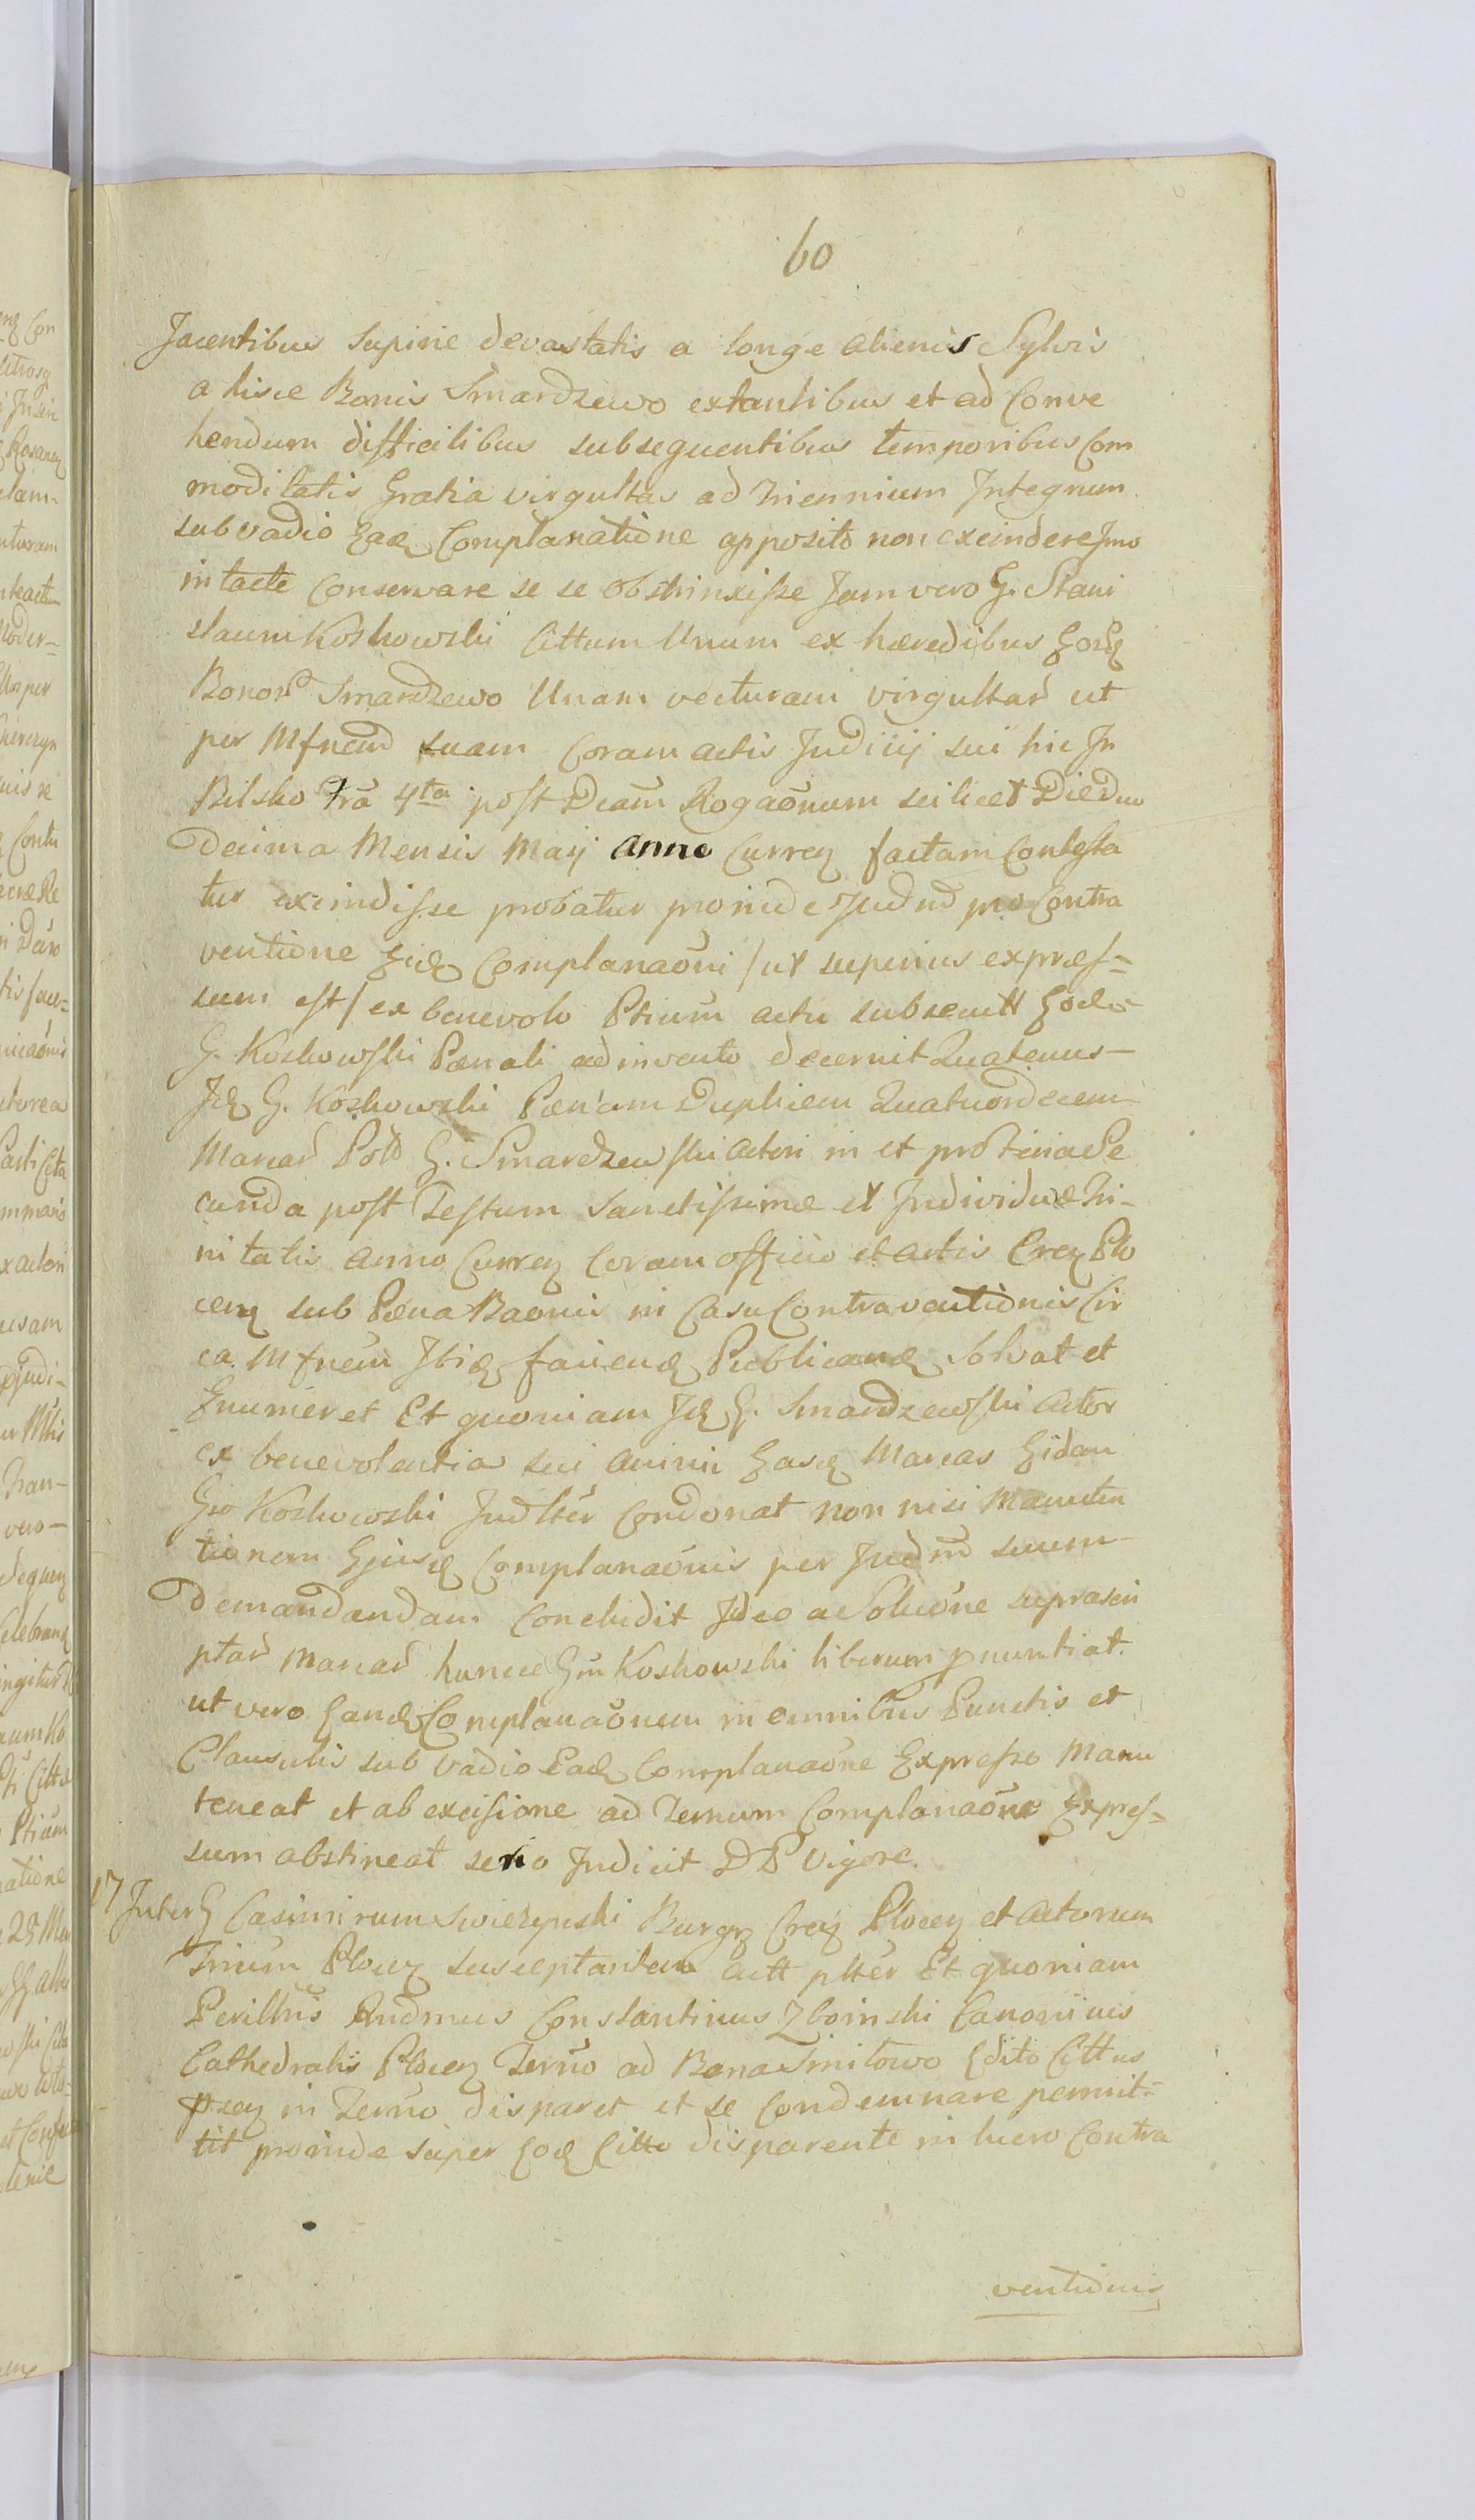 60
Jacentibus supine devastatis a longe alienis Sylvis
a hisce Bonis Smardzewo extantibus et ad Conve
hendum difficilibus subsequentibus temporibus Com
moditatis Gratia virgultas ad Triennium Integrum
sub vadio Eadē Complanatione apposito non exeindere Imo
intacte Conservare se se obstrinxisse Jam vero G. Stani
slaum Koskowski Cittum Unum ex hæredibus
Bonorū Smardzewo Unam vecturam virgultar̄ ut
per Mfnem̄ suam Coram actis Judicij sui hic In
Bilsko frā 4ta post Dcām Rogaōnum scilicet Die Duo
Decima Mensis Maij Anno Curren factam Contesta
tur exeindisse probatur proinde Judm̄ pro Contra
ventione Complanaōni / ut superius expres=
sum est / ex benevolo Ptium̄ actu subsecutt
G. Koskowski Pænali adinvento decernit Quatenus-
Idē G. Koskowski Pænam Duplicem Quatuordecem-
Marcar̄ Poll G. Smardzewski actori in et pro feria Se
cunda post Festum Sanctissimæ et Individuæ Tri-
nitatis anno Curren Coram officio et actis Cren Plo
cen sub Pæna Baōnis in Casu Contraventionis Cir
ca Mfnem̄ Ibiē faciend Publicand Solvat et
Enumeret Et quoniam Idē G. Smardzewski Actor
ex benevolentia sui animi Easd Marcas Eidem
Gso Koskowski Judltēr Condonat non nisi Manuten
tionem Ejusd Complanaōnis per Judm̄ suum-
Demandandam Concludit Ideo a Soluōne suprascri
ptar̄ Marcar̄ hunce Gsm̄ Koskowski liberum pnuntiat.
ut vero Eand Complanaōnem in omnibus Punctis et
Clausulis sub vadio Ead Complanaōne Expresso Manu
teneat et ab excisione ad Termum Complanaōne Expres=
sum abstineat serio Indicit D P Vigore.
17 Inter G Casimirum Swiezynski Burgr Cren Plocen et Actorum
Trium Plocen susceptantem Actt pltēr Et quoniam
Perillris Rndmus Constantinus Zboinski Canonicus
Cathedralis Plocen Termo ad Bona Smilowo Edito Cittus
psen in Termo disparet et se Condemnare permit=
tit proinde super Eod Citto disparente in lucro Contra
ventionis